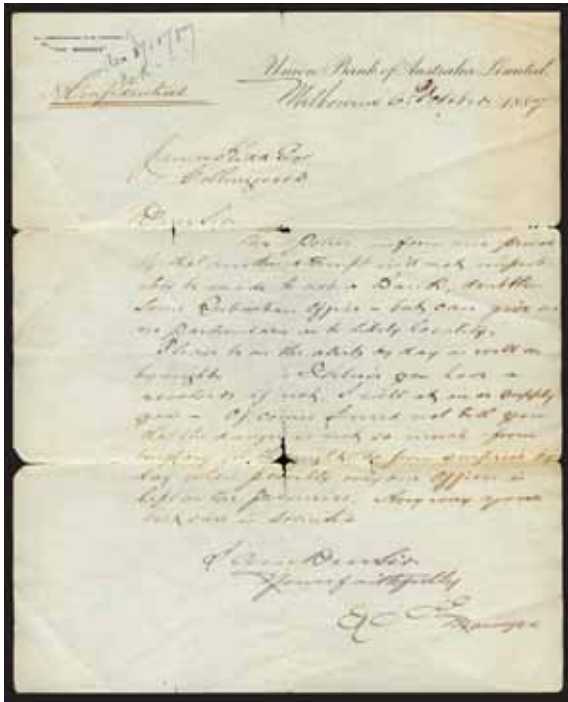 "THE MANAGER"
Confidential
Union Bank of Australia Limited.
Melbourne 6th October 1887
Collingwood
Dear Sir
The Police inform me
that another attempt will
be made to rob a Bank, doubtless
some Suburban Office - but can give
no particulars as to likely locality.
Please be on the alert by day as well as
by night. I believe you have a
revolver if not, I will at once supply
you - Of course I need not tell you
that the danger is not so much from
by night as from surprise by
day when possibly only one Officer is
left on the premises. Any way
I am Dear Sir
Yours faithfully
Manager